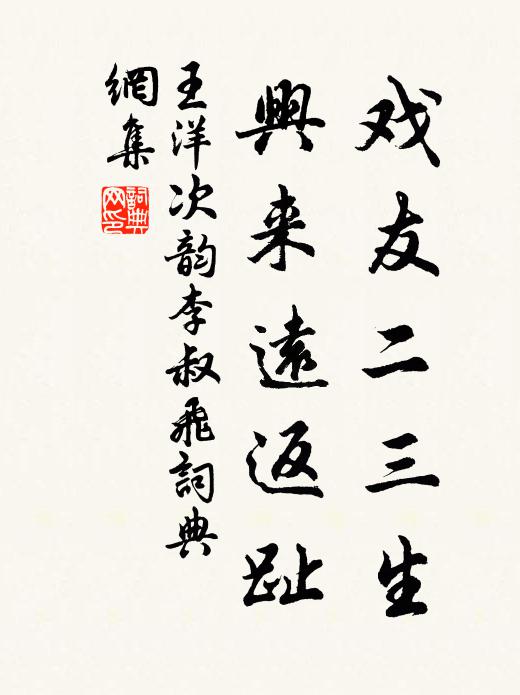 戏友二三生
興来遠返趾
王洋次韵李叔飛詞典
網集
詞典网印